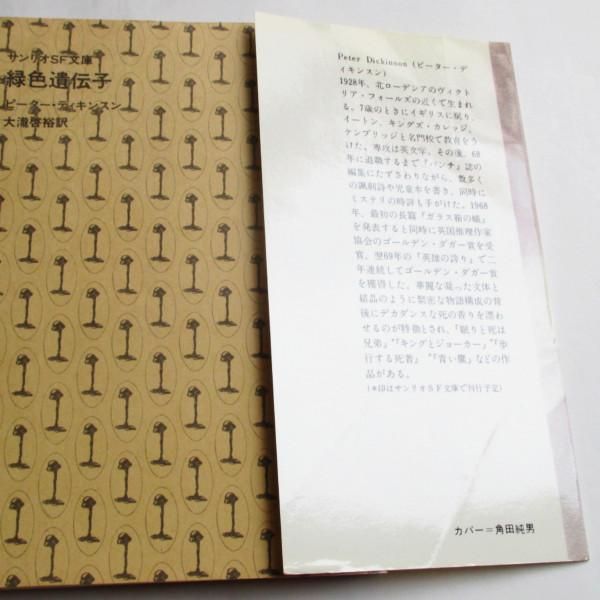 サンリオSF文庫
緑色遺伝子
ピーター・ディキンスン
大瀧啓裕訳
Peter Dickinson (ピーター・デ
ィキンスン)
1928年、北ローデシアのヴィクト
リア・フォールズの近くで生まれ
る。7歳のときにイギリスに戻り、
イートン、キングズ・カレッジ、
ケンブリッジと名門校で教育をう
けた。専攻は英文学。その後、68
年に退職するまで『パンチ』誌の
編集にたずさわりながら、数多く
の諷刺詩や児童本を書き、同時に
ミステリの時評も手がけた。1968
年、最初の長篇『ガラス箱の蟻』
を発表すると同時に英国推理作家
協会のゴールデン・ダガー賞を受
賞。翌69年の『英雄の誇り』で二
年連続してゴールデン・ダガー賞
を獲得した。華麗な凝った文体と
結晶のように緊密な物語構成の背
後にデカダンスな死の香りを漂わ
せるのが特徴とされ、『眠りと死は
兄弟』*『キングとジョーカー』*『歩
行する死者』*『青い鷹』などの作
品がある。
(*印はサンリオSF文庫で刊行予定)
カバー=角田純男